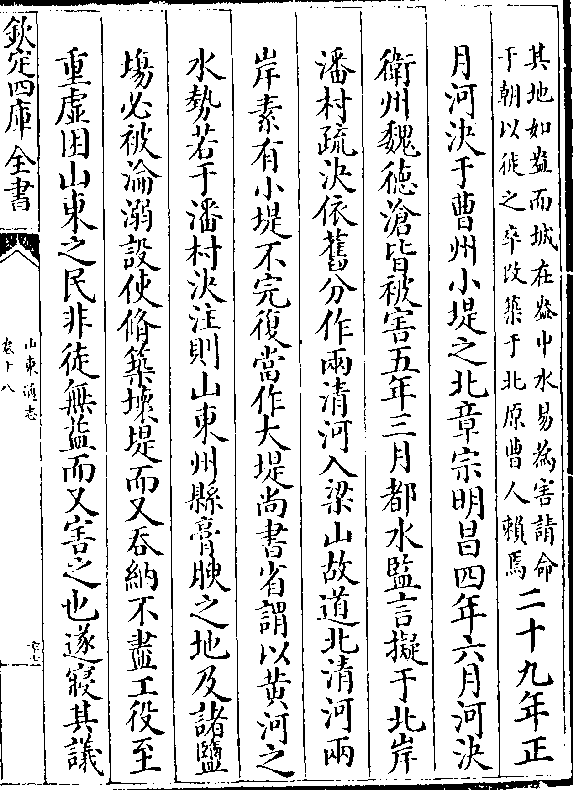 其地如盎而城在盎中水易為害請命
于朝以徙之卒改築于北原曹人賴焉
二十九年正
月河決于曹州小堤之北章宗明昌四年六月河決
衛州魏德滄皆被害五年三月都水監言擬于北岸
潘村疏決依舊分作兩清河入梁山故道北清河兩
岸素有小堤不完復當作大堤尚書省謂以黃河之
水勢若于潘村決注則山東州縣膏腴之地及諸鹽
塲必被淪溺設使脩築壊堤而又吞納不盡工役至
重虚困山東之民非徒無益而又害之也遂寢其議
欽定四庫全書
山東通志
卷十八